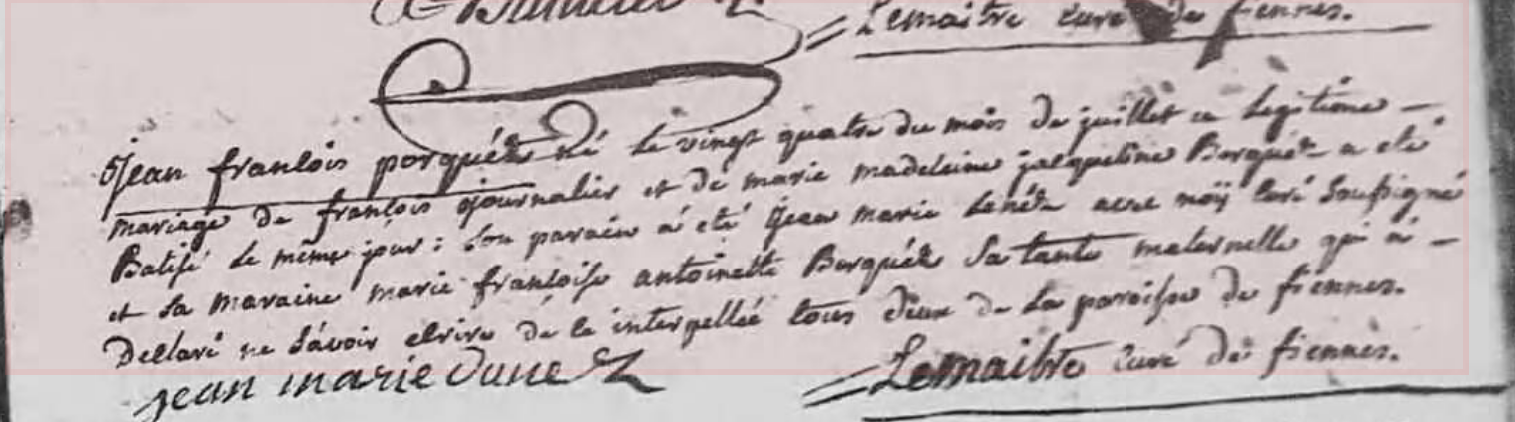 Lemaitre curé de fiennes.
jean francois porquét né le vingt quatre du mois de juillet en legitime
mariage de françois journalier et de marie madeleine jacqueline Borquét a eté
Batisé le même jour : son parain a eté jean marie avec moÿ curé soussigné
et sa maraine marie francoise antoinette Borquét sa tante maternelle qui a
declaré ne sávoir ecrire de ce interpellée tous deux de la paroisse de fiennes.
jean marie Lemaitre curé de fiennes.